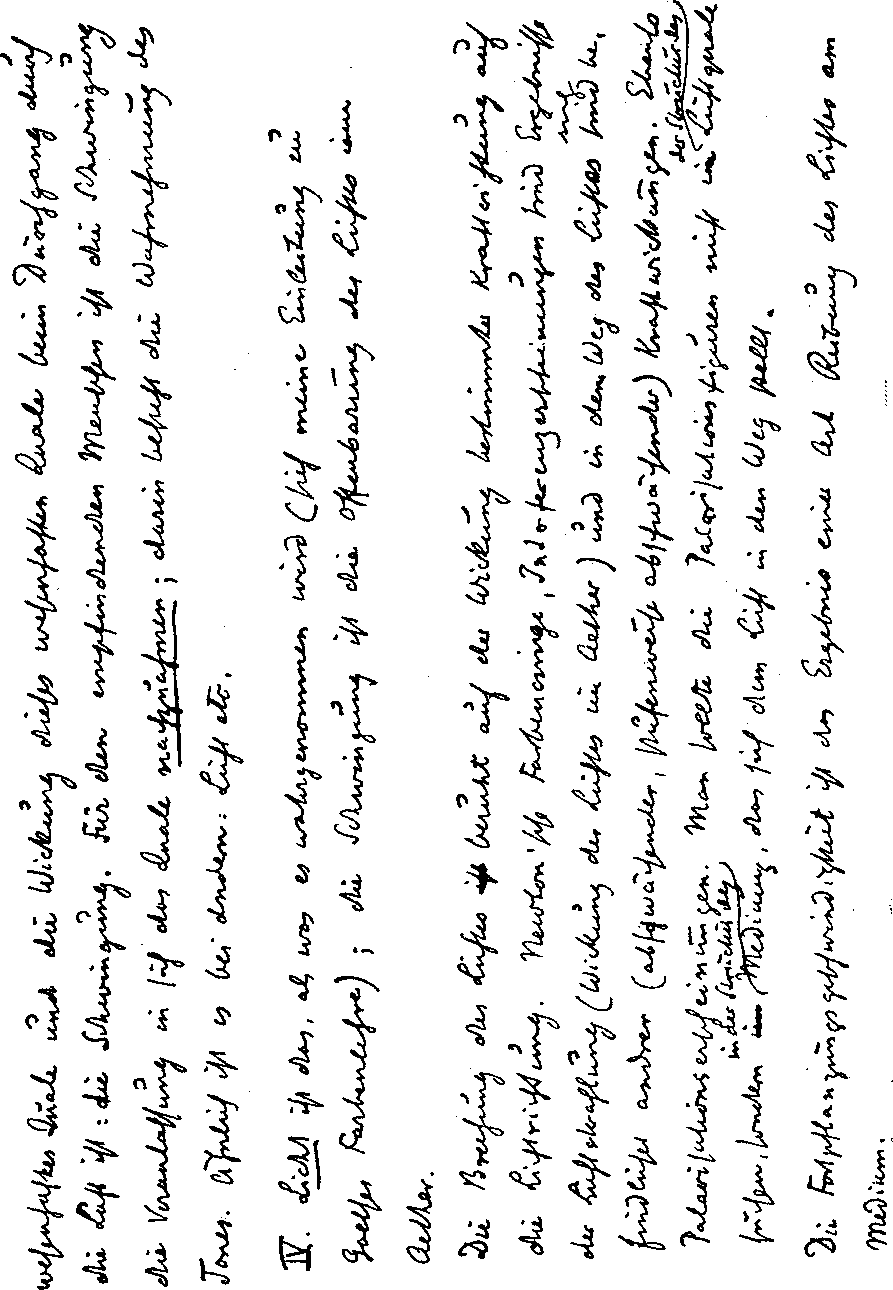 wesenhaftes Quale und die Wirkung dieses wesenhaften Quale beim Durchgang durch
die Luft ist: die Schwingung. Für den empfindenden Menschen ist die Schwingung
die Veranlassung in sich das Quale nachzuahmen; darin besteht die Wahrnehmung des
Tones. Ähnlich ist es bei andern: Licht etc.
IV. Licht ist das, als was es wahrgenommen wird (sieh meine Einleitung zu
Goethes Farbenlehre); die Schwingung ist die Offenbarung des Lichtes im
Aether.
Die Brechung des Lichtes beruht auf der Wirkung bestimmter Kraftrichtung auf
die Lichtrichtung. Newton'sche Farbenringe, Interferenzerscheinungen sind Ergebnisse
der Lichtkraftung (Wirkung des Lichtes im Aether) und in dem Weg des Lichtes sich be,
findlicher andrer (abschwächender, stufenweise abschwächender) Kraftwirkungen. Ebenso
Polarisationserscheinungen. Man sollte die Polarisationsfiguren nicht in der Structur des Lichtquale
suchen, sondern in der Structur des Mediums, das sich dem Licht in den Weg stellt.
Die Fortpflanzungsgeschwindigkeit ist das Ergebnis einer Art Reibung des Lichtes am
Medium.